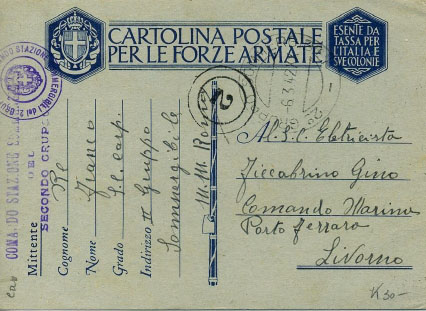 CARTOLINA POSTALE
PER LE FORZE ARMATE
ESENTE DA
TASSA PER
L'ITALIA E
SVE COLONIE
COMANDO STAZIONE
DEL
SECONDO GRUPPO
Mittente
Cognome Re
Nome Franco
Grado S.C. carp.
Indirizzo II Gruppo
Sommergibile
M.M. Roma
2
6.3.42
Al S.C. Eletricista
Ficcabrino Gino
Comando Marina
Porto Ferraro
Livorno
K 50-